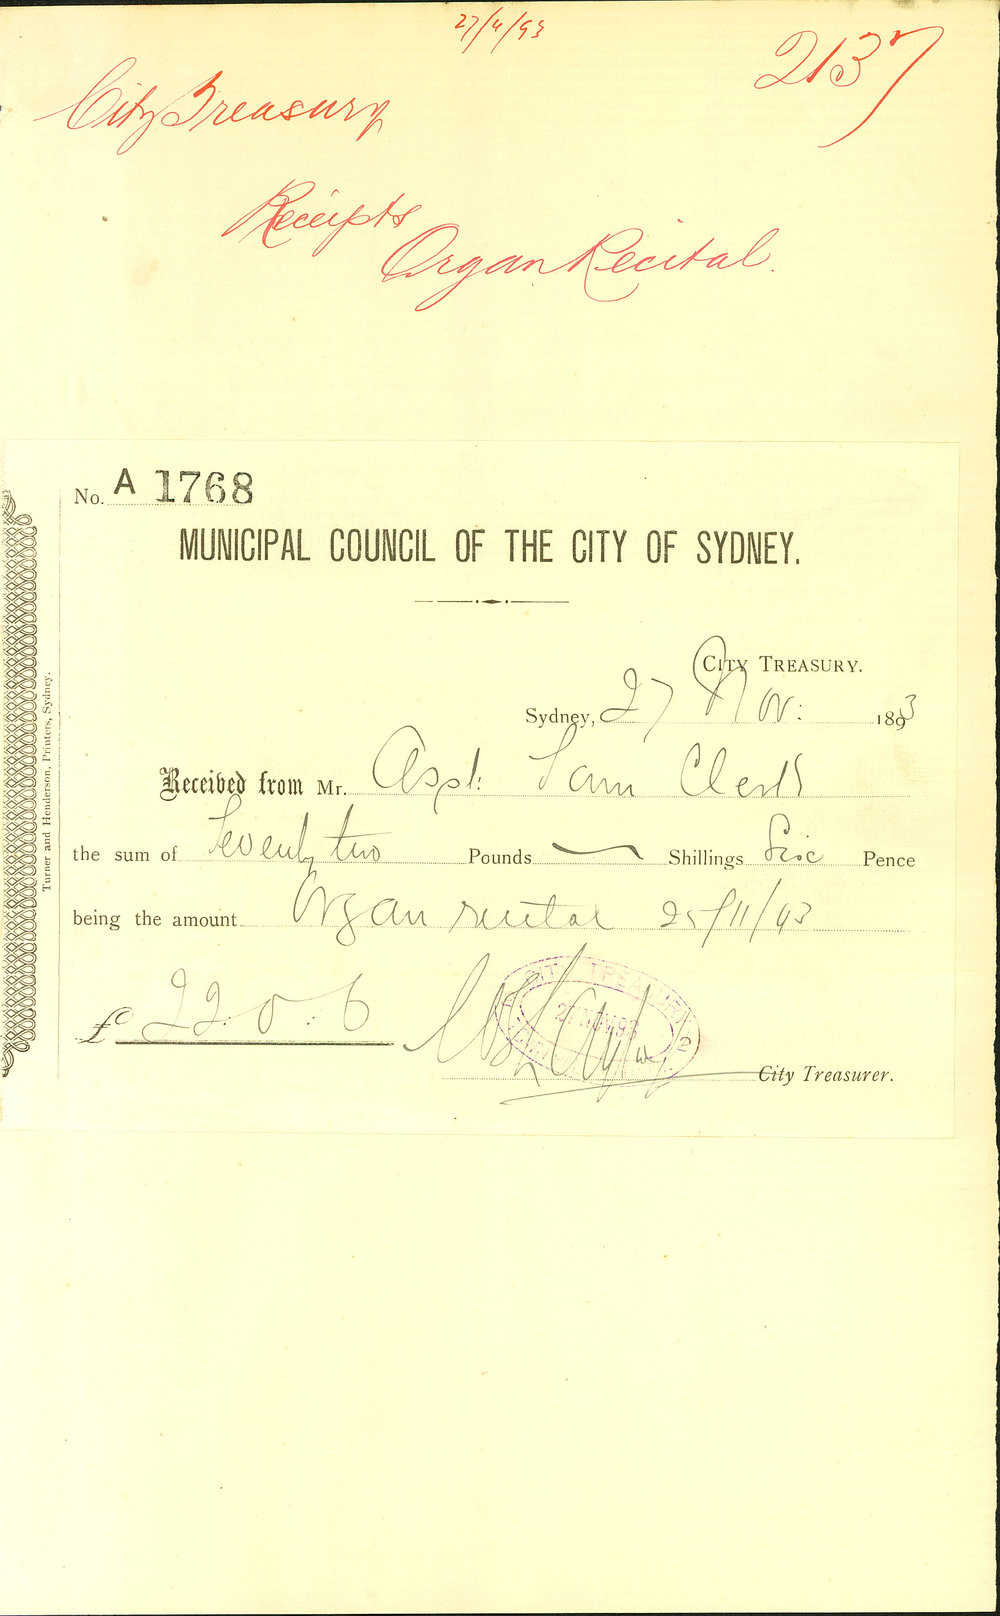 27/11/93
2137
City Treasury
Receipts
Organ Recital.
No. A 1768
MUNICIPAL COUNCIL OF THE CITY OF SYDNEY.
CITY TREASURY.
Sydney, 27 Nov: 1893
Received from Mr. Asst: Town Clerk
the sum of Seventy two Pounds — Shillings Six Pence
being the amount Organ recital 25/11/93
£ 22:0:6
CITY TREASURY
27 NOV 93
2
City Treasurer.
Turner and Henderson, Printers, Sydney.